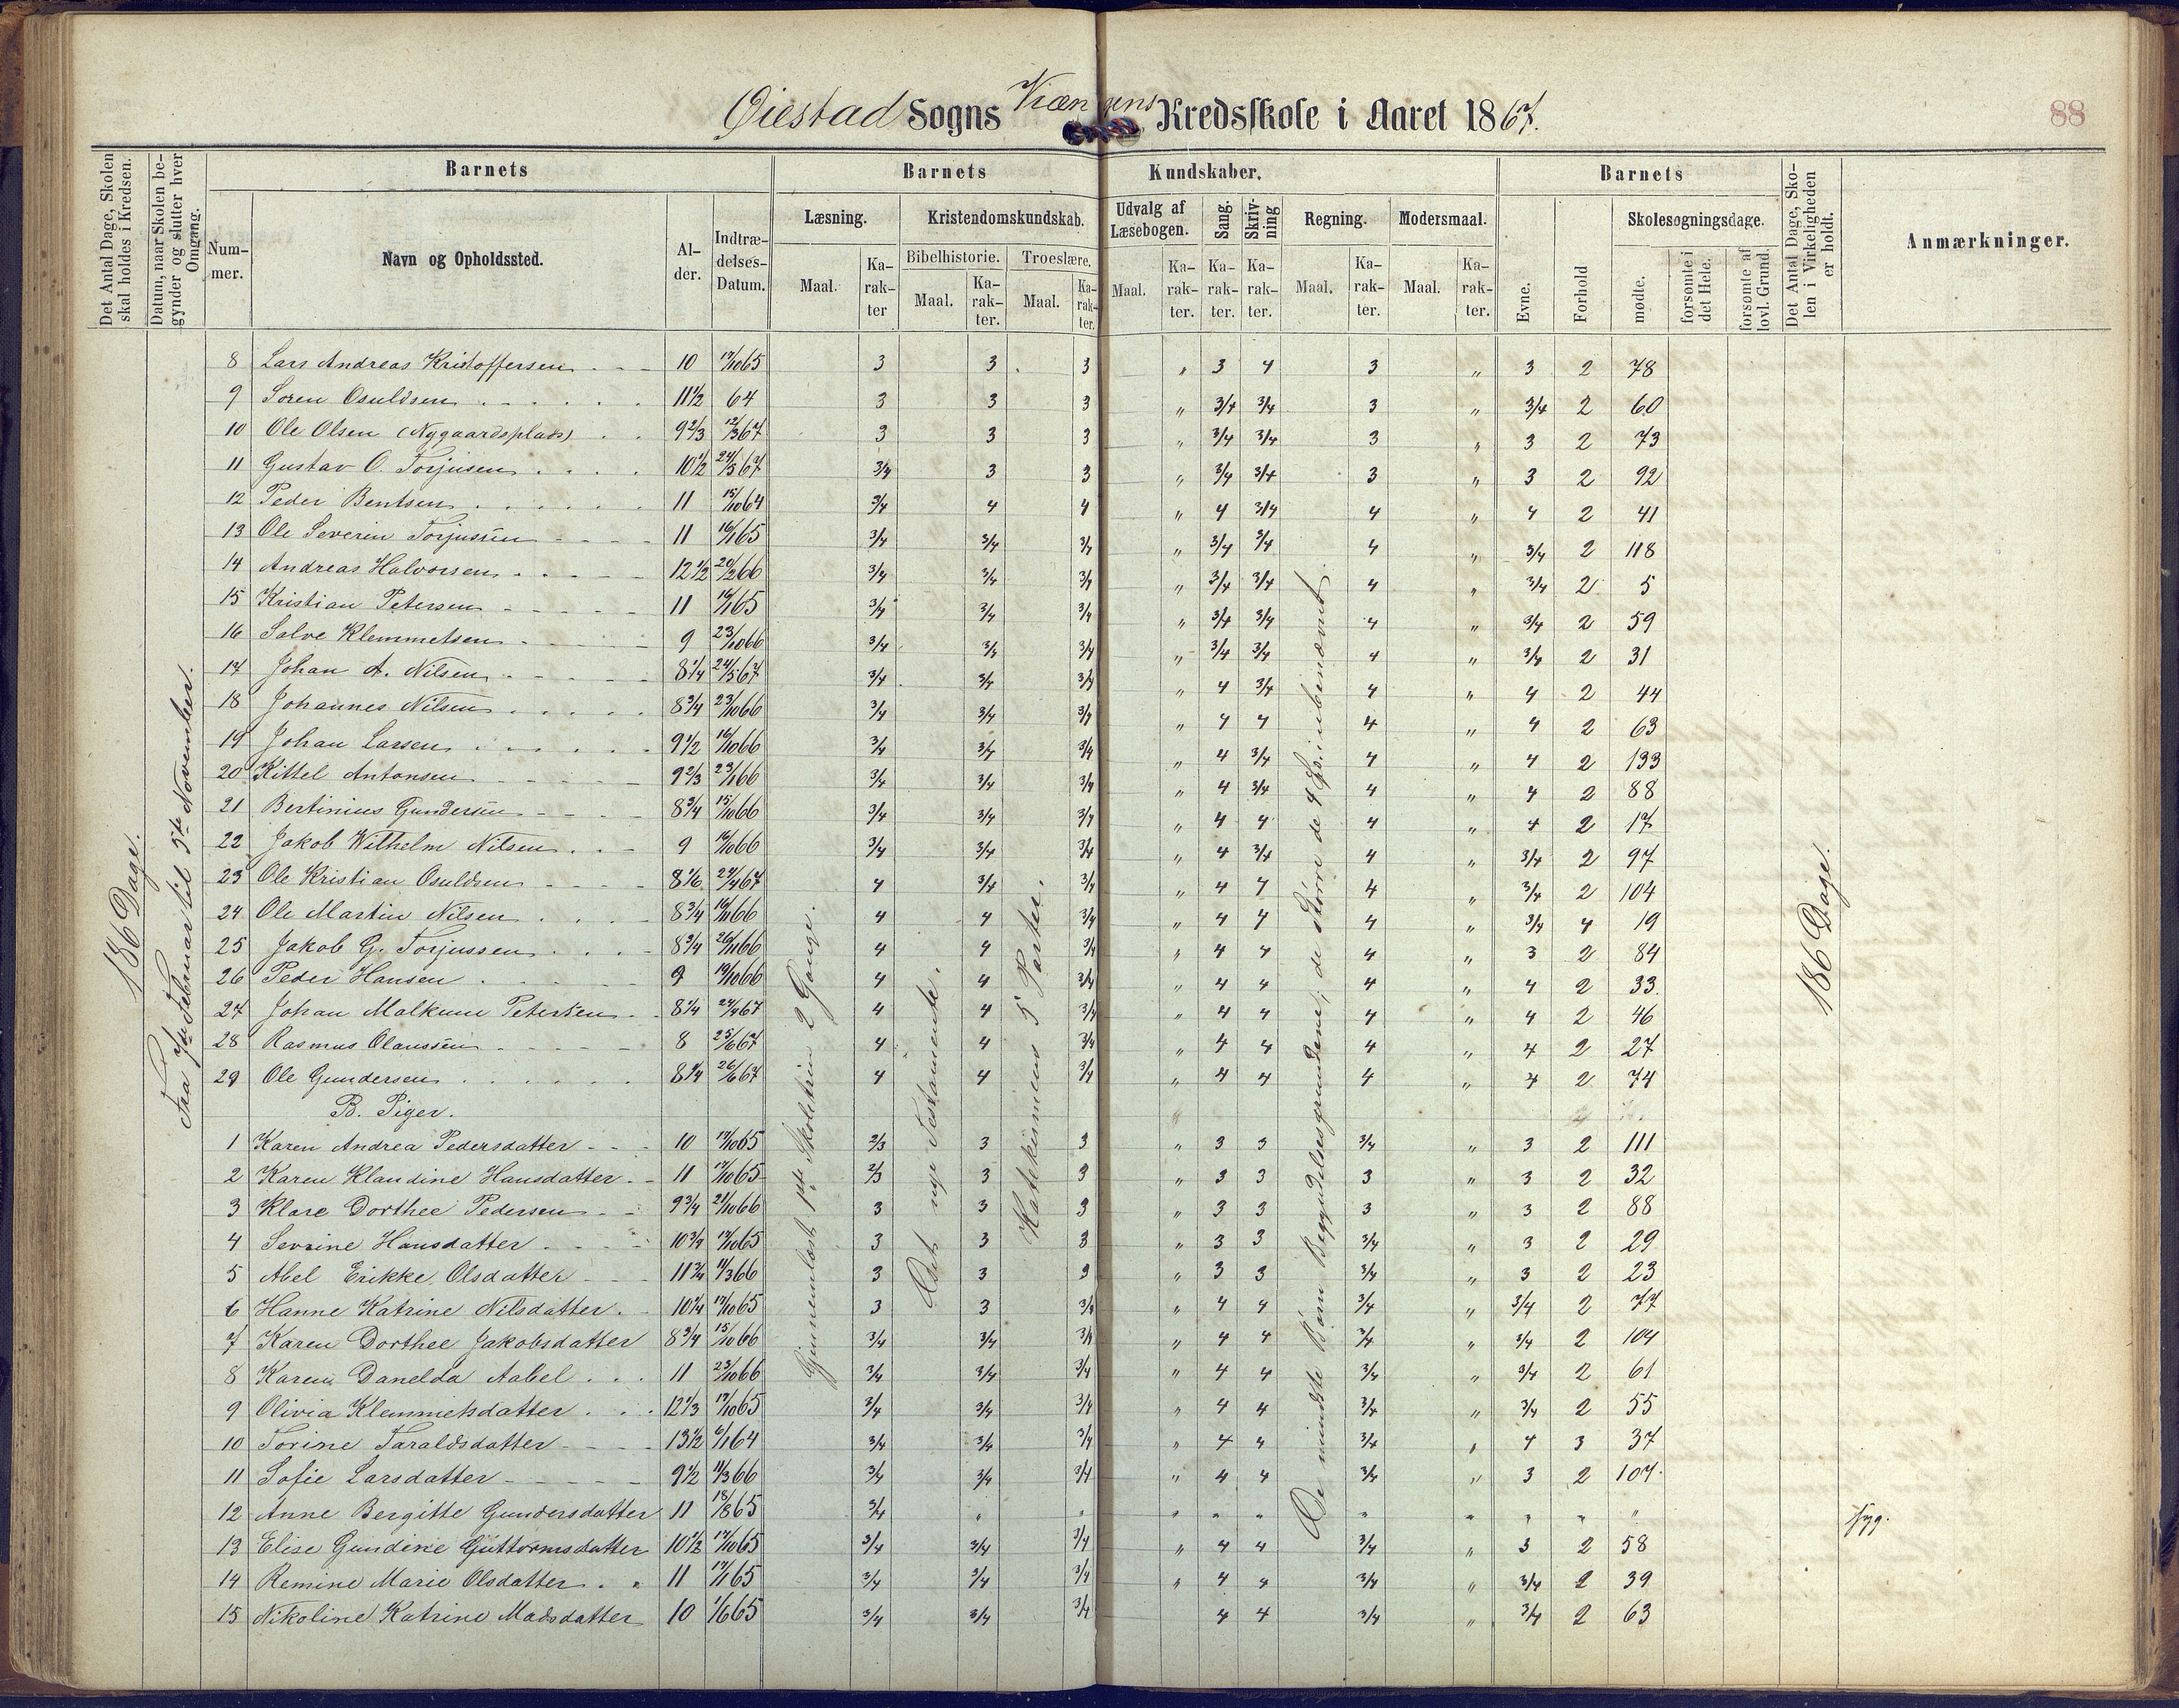 Øiestad Sogns Vrængens Kredsskole i Aaret 1867.
88
Det Antal Dage, Skolen skal holdes i Kredsen.
Datum, naar Skolen begynder og slutter hver Omgang.
Barnets
Nummer.
Navn og Opholdssted.
Alder.
Indtrædelses-Datum.
Barnets Kundskaber.
Læsning.
Maal.
Karakter
Kristendomskundskab.
Bibelhistorie.
Maal.
Karakter.
Troeslære.
Maal.
Karakter.
Udvalg af Læsebogen.
Maal.
Karakter.
Sang.
Karakter.
Skrivning
Karakter.
Regning.
Maal.
Karakter.
Modersmaal.
Maal.
Karakter.
Barnets
Evne.
Forhold
Skolesøgningsdage.
mødte.
forsømte i det Hele.
forsømte af lovl. Grund.
Det Antal Dage, Skolen i Virkeligheden er holdt.
Anmærkninger.
186 Dage.
Fra 7de Februar til 5te November.
Gjennemlæst 1ste Skoletrin 2 Gange.
Det nye Testamente.
Katekismens 5 Parter.
De mindste Børn Begyndelsesgrundene; de større de 4 Sp. i ubenævnt.
186 Dage.
8 Lars Andreas Kristoffersen 10 17/10 65 3 3 3 " 3 4 3 " 3 2 78
9 Søren Osuldsen 11 1/2 64 3 3 3 " 3/4 3/4 3 " 3/4 2 60
10 Ole Olsen (Nygaardsplads) 9 2/3 12/3 67 3 3 3 " 3/4 3/4 3 " 3 2 73
11 Gustav O. Torjusen 10 1/2 24/5 67 3/4 3 3 " 3/4 3/4 3 " 3 2 92
12 Peder Bentsen 11 15/10 64 3/4 4 4 " 4 3/4 4 " 4 2 41
13 Ole Severin Torjussen 11 16/1 65 3/4 3/4 3/4 " 3/4 3/4 4 " 3/4 2 118
14 Andreas Halvorsen 12 1/2 20/2 66 3/4 3/4 3/4 " 3/4 3/4 4 " 3/4 2 5
15 Kristian Petersen 11 16/1 65 3/4 3/4 3/4 " 3/4 3/4 4 " 3/4 2 59
16 Salve Klemmetsen 9 23/10 66 3/4 3/4 3/4 " 3/4 3/4 4 " 3/4 2 31
17 Johan A. Nilsen 8 1/4 24/5 67 3/4 3/4 3/4 " 4 3/4 4 " 4 2 44
18 Johannes Nilsen 8 3/4 23/10 66 3/4 3/4 3/4 " 4 4 4 " 4 2 63
19 Johan Larsen 9 1/2 16/10 66 3/4 3/4 3/4 " 4 3/4 4 " 4 2 133
20 Kittel Antonsen 9 2/3 23/1 66 3/4 3/4 3/4 " 4 3/4 4 " 4 2 88
21 Bertinius Gundersen 8 3/4 15/10 66 3/4 3/4 3/4 " 4 4 4 " 4 2 17
22 Jakob Wilhelm Nilsen 9 16/10 66 3/4 3/4 3/4 " 4 3/4 4 " 3/4 2 97
23 Ole Kristian Osuldsen 8 1/6 24/4 67 4 3/4 3/4 " 4 4 4 " 3/4 2 104
24 Ole Martin Nilsen 8 3/4 16/11 66 4 4 3/4 " 4 4 4 " 3/4 4 19
25 Jakob G. Torjussen 8 3/4 26/11 66 4 4 3/4 " 4 4 4 " 3 2 84
26 Peder Hansen 9 19/10 66 4 4 3/4 " 4 4 4 " 4 2 33.
27 Johan Malkum Petersen 8 1/4 24/4 67 4 4 3/4 " 4 4 4 " 4 2 46
28 Rasmus Olaussen 8 25/6 67 4 4 3/4 " 4 4 4 " 4 2 27
29 Ole Gundersen 8 1/4 26/6 67 4 4 3/4 " 4 4 4 " 4 2 74
B. Piger.
1 Karen Andrea Pedersdatter 10 17/10 65 2/3 3 3 " 3 3 3/4 " 3 2 111
2 Karen Klaudine Hansdatter 11 17/10 65 2/3 3 3 " 3 3 3 " 3 2 32
3 Klare Dorthee Pedersen 9 3/4 21/10 66 3 3 3 " 3 3 3 " 3 2 88
4 Sevrine Hansdatter 10 3/4 17/10 65 3 3 3 " 3 3 3/4 " 3 2 29
5 Abel Erikke Olsdatter 11 3/4 11/3 66 3 3 3 " 3 3 3/4 " 3 2 23
6 Hanne Katrine Nilsdatter. 10 1/4 17/10 65 3 3 3/4 " 4 4 3/4 " 3/4 2 77
7 Karen Dorthee Jakobsdatter 8 3/4 15/10 66 3/4 3/4 3/4 " 4 4 3/4 " 3/4 2 104
8 Karen Danelda Aabel 11 23/10 66 3/4 3/4 3/4 " 4 4 3/4 " 3/4 2 61
9 Olivia Klemmetsdatter 12 1/3 17/10 65 3/4 3/4 3/4 " 4 4 3/4 " 3/4 2 55
10 Torine Taraldsdatter 13 1/2 6/1 64 3/4 3/4 3/4 " 4 4 3/4 " 4 3 37
11 Sofie Larsdatter 9 1/2 11/3 66 3/4 3/4 3/4 " 4 4 3/4 " 3 2 107.
12 Anne Bergitte Gundersdatter 11 18/8 65 3/4 " " " " " " " " " " syg.
13 Elise Gundine Guttormsdatter 10 1/2 17/10 65 3/4 3/4 3/4 " 4 4 3/4 " 3 2 58
14 Remine Marie Olsdatter 11 17/1 65 3/4 3/4 3/4 " 4 4 3/4 " 3/4 2 39
15 Nikoline Katrine Madsdatter 10 1/6 65 3/4 3/4 3/4 4 4 3/4 " 3/4 2 63